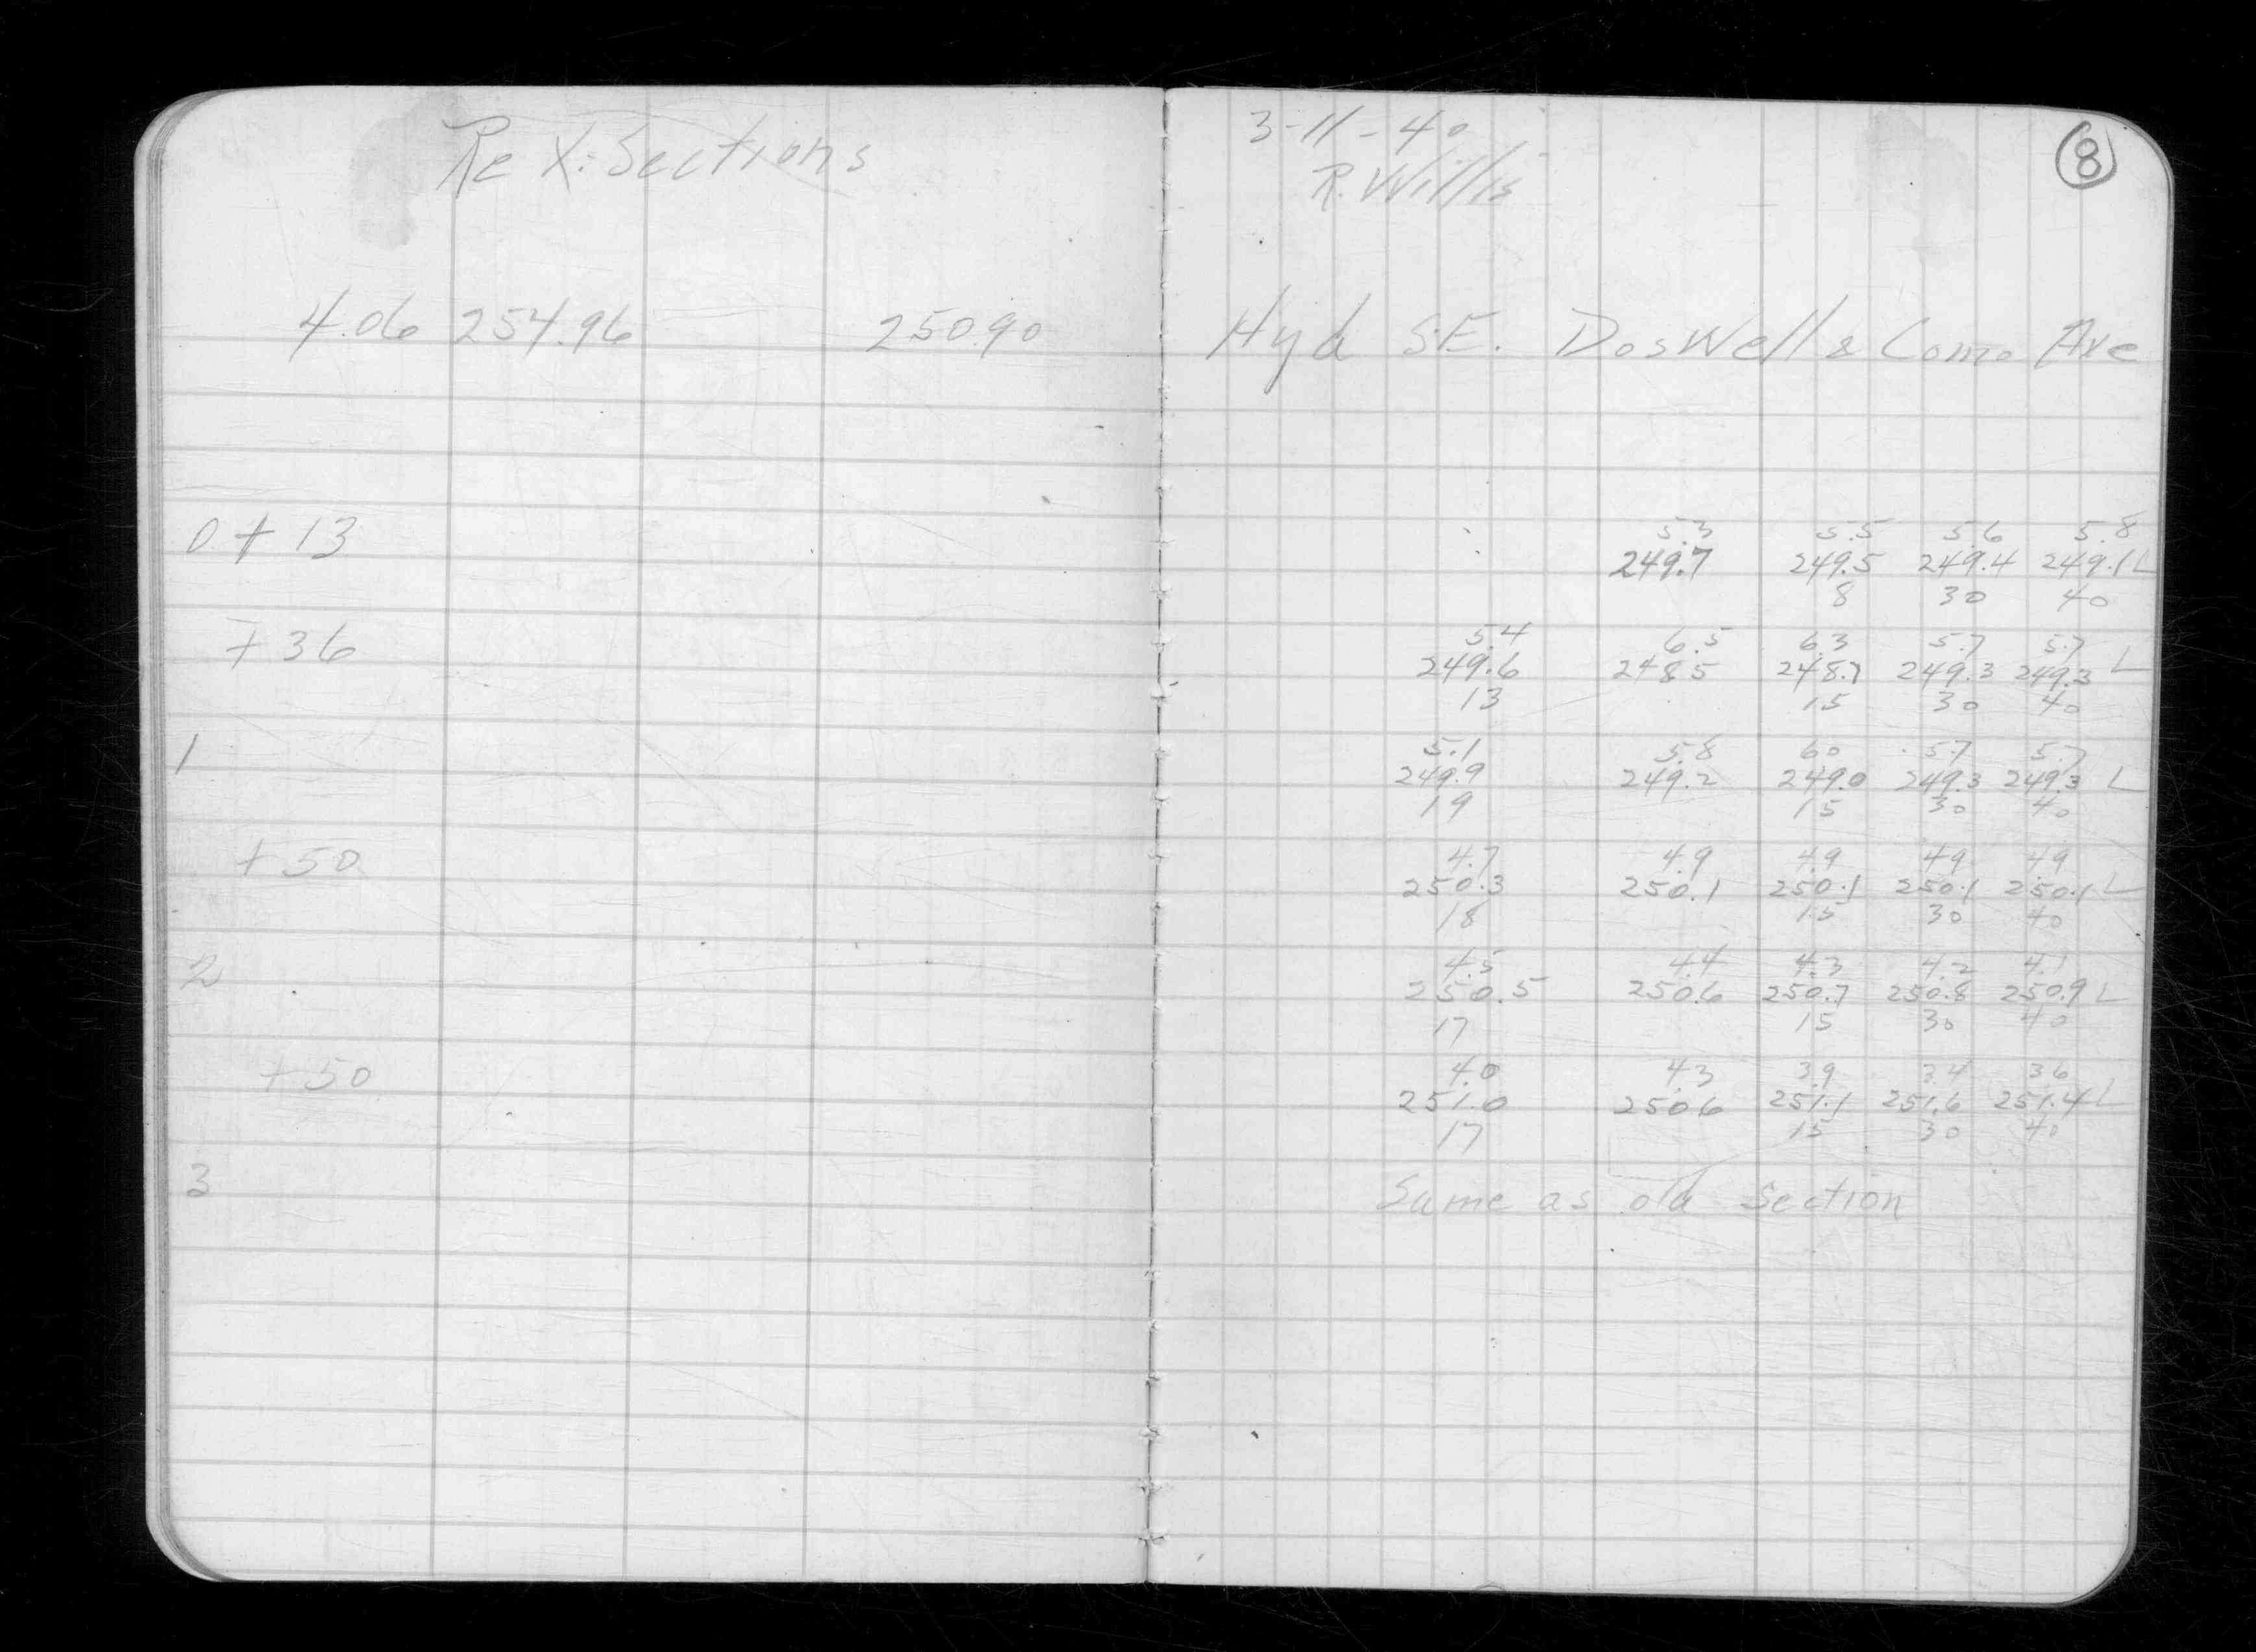 Re X-Sections
3-11-40
R. Willis
8
4.06 254.96 250.90 Hyd S.E. Doswell & Como Ave
5.3 5.5 5.6 5.8
0 + 13 249.7 249.5 249.4 249.1 L
8 30 40
5.4 6.5 6.3 5.7 5.7
+ 36 249.6 248.5 248.7 249.3 249.3 L
13 15 30 40
5.1 5.8 6.0 5.7 5.7
1 249.9 249.2 249.0 249.3 249.3 L
19 15 30 40
4.7 4.9 4.9 4.9 4.9
+ 50 250.3 250.1 250.1 250.1 250.1 L
18 15 30 40
4.5 4.4 4.3 4.2 4.1
2 250.5 250.6 250.7 250.8 250.9 L
17 15 30 40
4.0 4.3 3.9 3.4 3.6
+ 50 251.0 250.6 251.1 251.6 251.4 L
17 15 30 40
3 Same as old Section